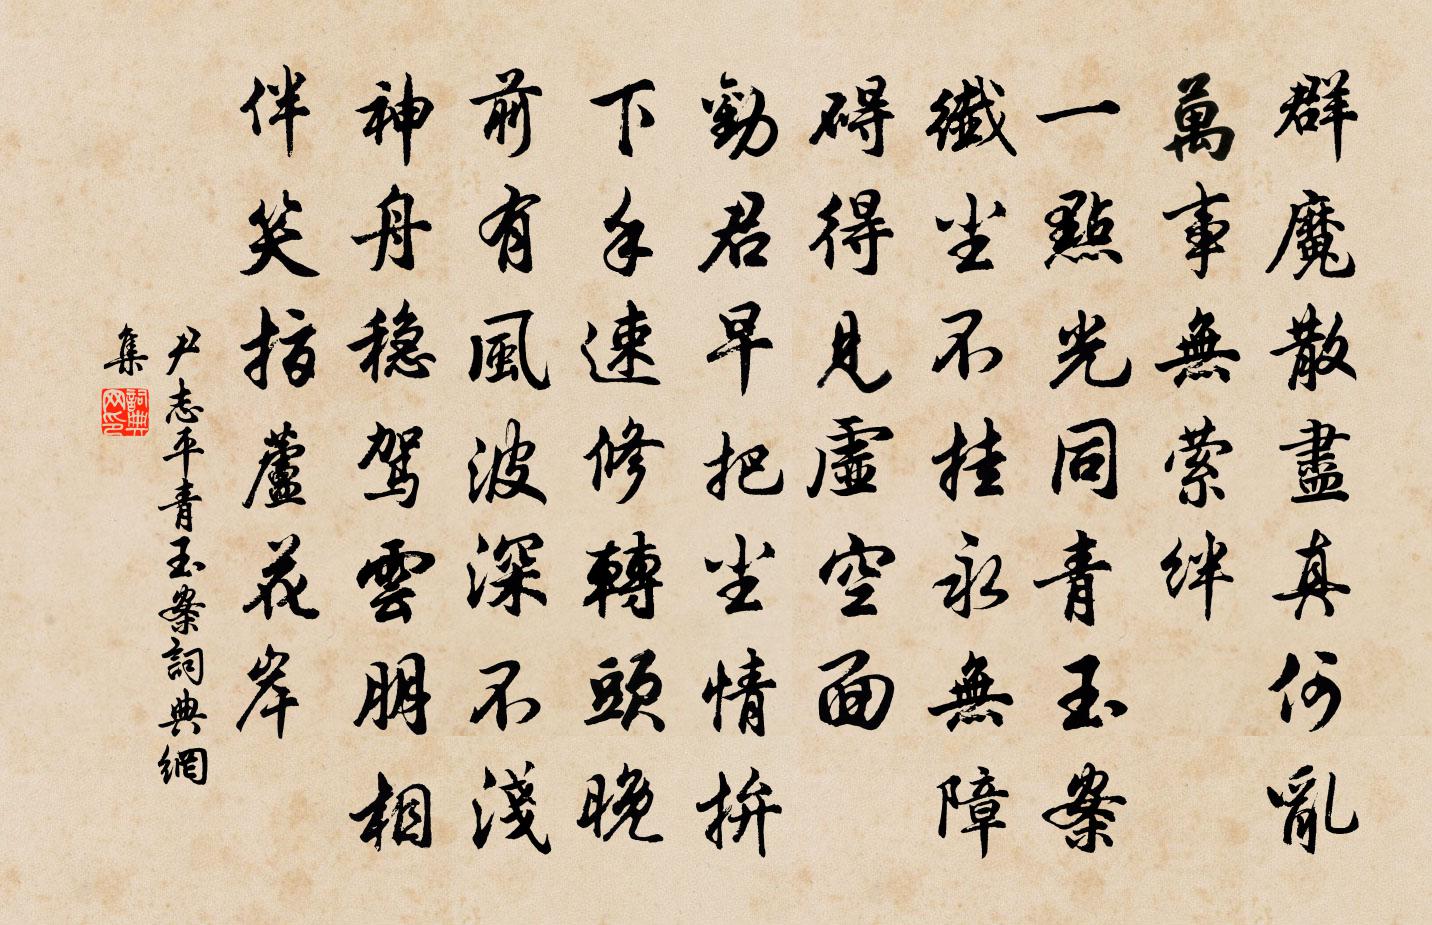 群魔散盡真何亂
萬事無縈絆
一點光同青玉案
纖塵不挂永無障
碍得見虛空面
勸君早把塵情拚
下手速修轉頭晚
前有風波深不淺
神舟穩駕雲朋相
伴笑指蘆花岸
尹志平青玉案詞典網
集
詞典网印